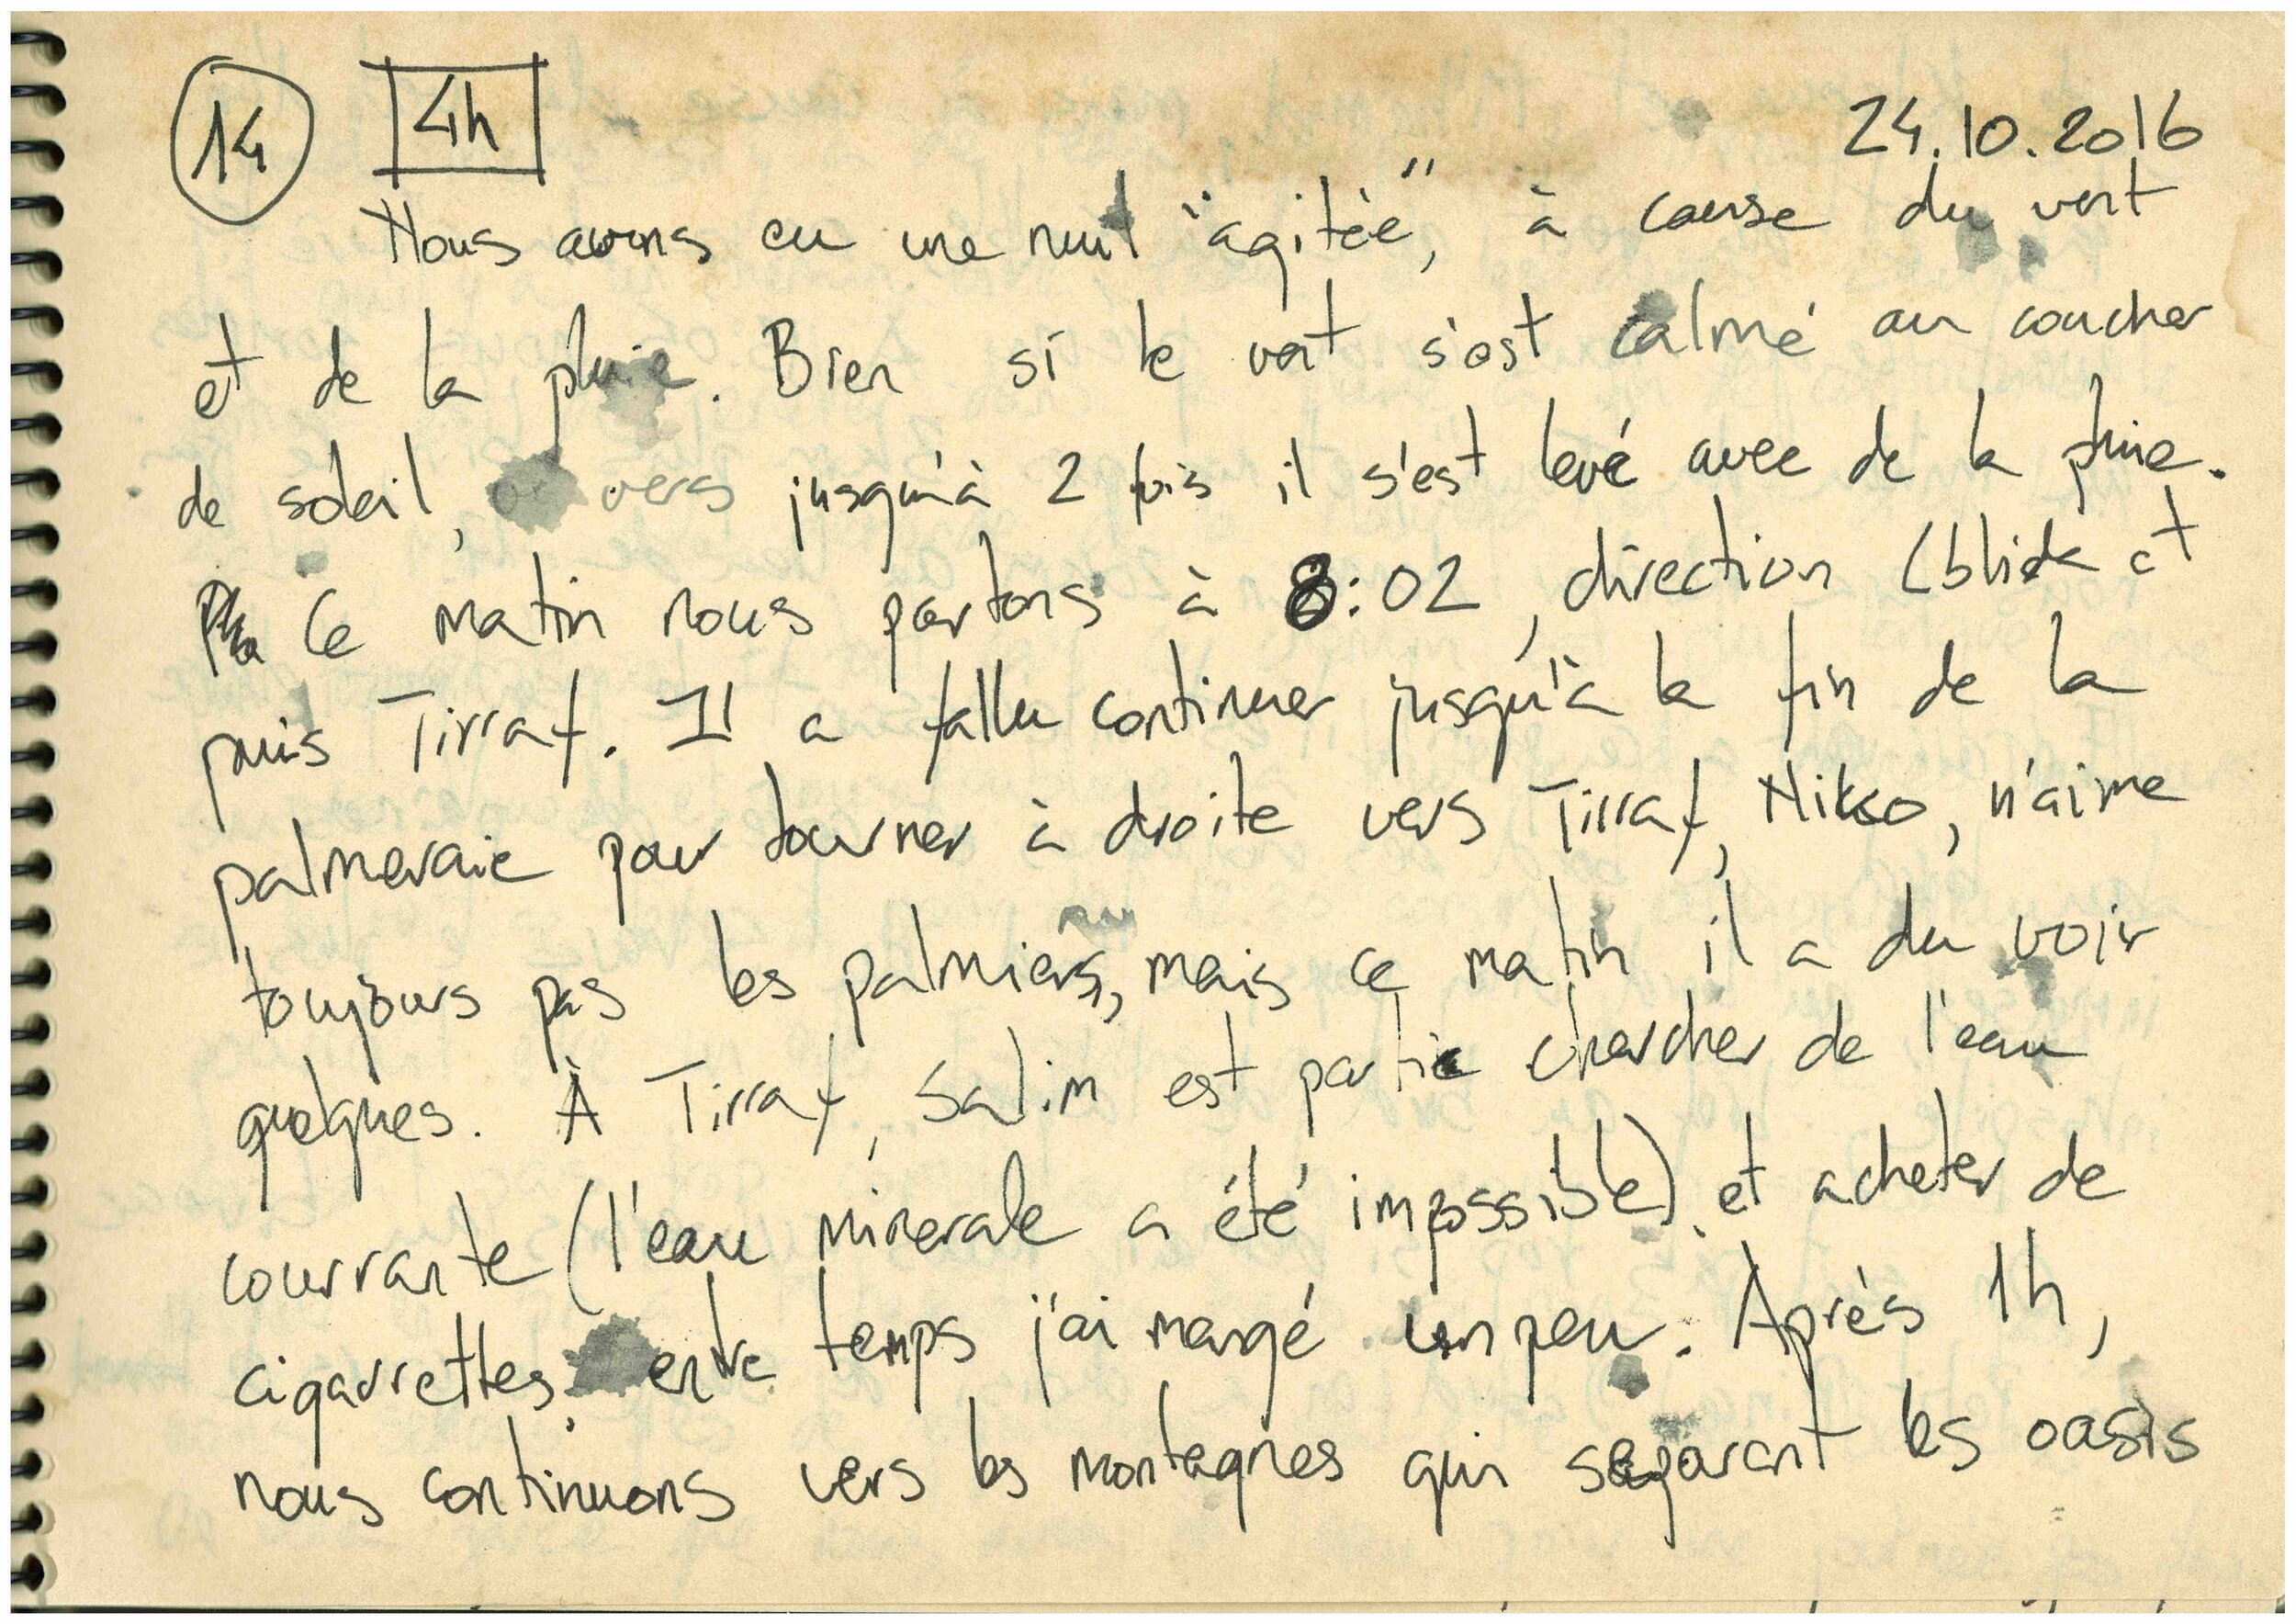 14 4h 24.10.2016
Nous avons eu une nuit "agitée", à cause du vent
et de la pluie. Bien si le vent s'est calmé au coucher
de soleil, vers jusqu'à 2 fois il s'est levé avec de la pluie.
Ce matin nous partons à 8:02, direction (blida et
puis Tirraf. Il a fallu continuer jusqu'à la fin de la
palmeraie pour tourner à droite vers Tirraf, Niko, n'aime
toujours pas les palmiers, mais ce matin il a du voir
quelques. À Tirraf, Salim est partie chercher de l'eau
courrante (l'eau minerale a été impossible) et acheter de
cigarrettes. entre temps j'ai mangé un peu. Après 1h,
nous continuons vers les montagnes qui separent les oasis